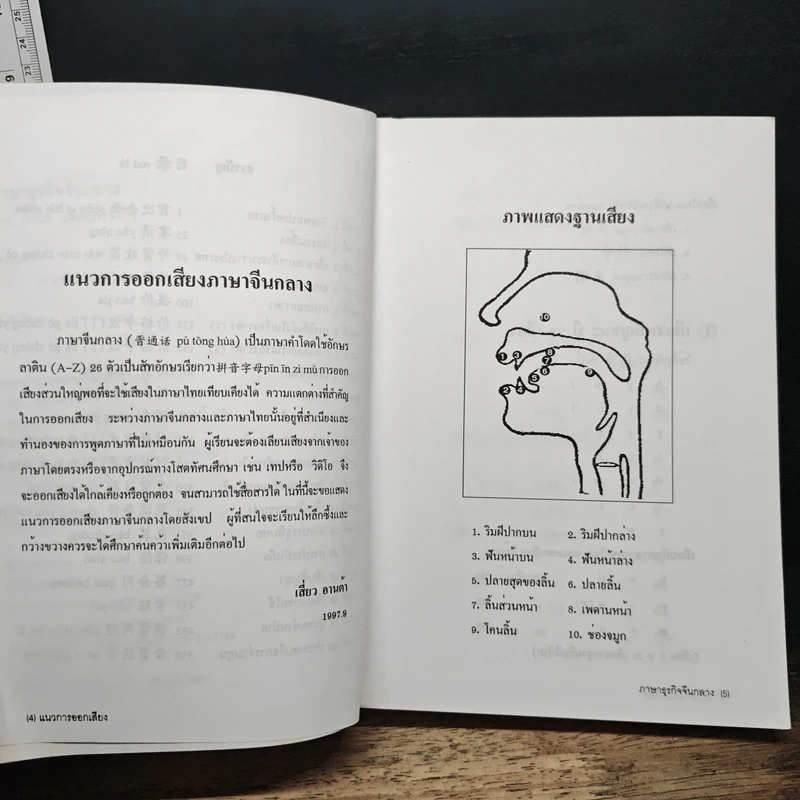 แนวการออกเสียงภาษาจีนกลาง
ภาษาจีนกลาง (普通话 pǔ tōng hùa) เป็นภาษาคำโดดใช้อักษร
ลาติน (A-Z) 26 ตัวเป็นสัทอักษรเรียกว่า拼音字母pīn īn zì mǔ การออก
เสียงส่วนใหญ่พอที่จะใช้เสียงในภาษาไทยเทียบเคียงได้ ความแตกต่างที่สำคัญ
ในการออกเสียง ระหว่างภาษาจีนกลางและภาษาไทยนั้นอยู่ที่สำเนียงและ
ทำนองของการพูดภาษาที่ไม่เหมือนกัน ผู้เรียนจะต้องเลียนเสียงจากเจ้าของ
ภาษาโดยตรงหรือจากอุปกรณ์ทางโสตทัศนศึกษา เช่น เทปหรือ วิดิโอ จึง
จะออกเสียงได้ใกล้เคียงหรือถูกต้อง จนสามารถใช้สื่อสารได้ ในที่นี้จะขอแสดง
แนวการออกเสียงภาษาจีนกลางโดยสังเขป ผู้ที่สนใจจะเรียนให้ลึกซึ้งและ
กว้างขวางควรจะได้ศึกษาค้นคว้าเพิ่มเติมอีกต่อไป
เสี่ยว อานต้า
1997.9
(4) แนวการออกเสียง
ภาพแสดงฐานเสียง
10
1 3 7 8 9
2 4 5 6
1. ริมฝีปากบน 2. ริมฝีปากล่าง
3. ฟันหน้าบน 4. ฟันหน้าล่าง
5. ปลายสุดของลิ้น 6. ปลายลิ้น
7. ลิ้นส่วนหน้า 8. เพดานหน้า
9. โคนลิ้น 10. ช่องจมูก
ภาษาธุรกิจจีนกลาง (5)